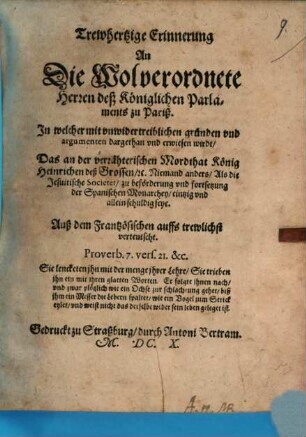 9.
Trewhertzige Erinnerung
An
Die Wolverordnete
Herren deß Königlichen Parla-
ments zu Pariß.
In welcher mit vnwidertreiblichen gründen vnd
argumenten dargethan vnd erwiesen wirdt/
Das an der verrähterischen Mordthat König
Heinrichen deß Grossen/ꝛc. Niemand anders/ Als die
Jesuitische Societet/ zu beförderung vnd fortsetzung
der Spanischen Monarchey/ eintzig vnd
allein schuldig seye.
Auß dem Frantzösischen auffs trewlichst
verteutscht.
Proverb. 7. vers. 21. &c.
Sie lencketen jhn mit der menge jhrer Lehre/ Sie trieben
jhn ein mit jhren glatten Worten. Er folgte jhnen nach/
vnd zwar plötzlich wie ein Ochse zur schlachtung gehet/ biß
jhm ein Messer die Lebern spaltet/ wie ein Vogel zum Strick
eylet/ vnd weist nicht das derselbe wider sein leben geleget ist.
Gedruckt zu Straßburg/ durch Antoni Bertram.
M. DC X.